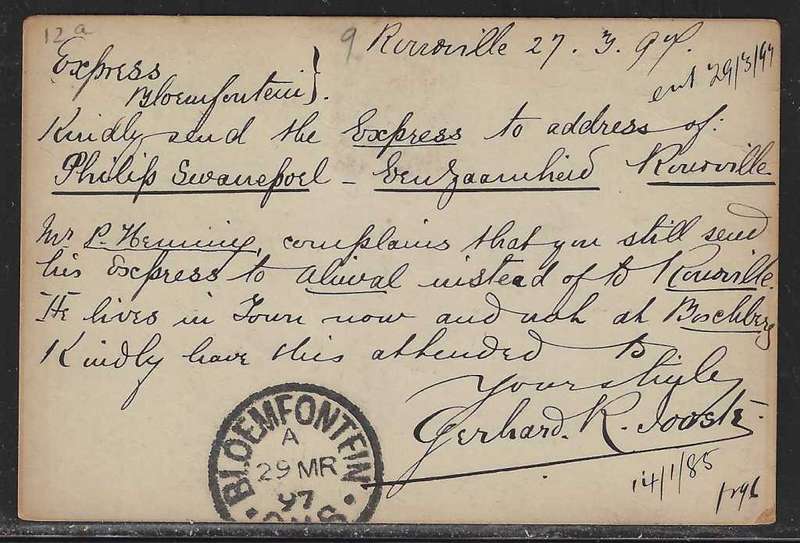 12a
9 Rouxville 27. 3. 97.
Express
Bloemfontein }.
ent 29/3/97
Kindly send the Express to address of:
Philip Swanepoel – Eenzaamheid Rouxville.
Mr P. Heming, complains that you still send
his Express to Aliwal instead of to Rouxville.
He lives in Town now and not at Boschberg
Kindly have this attended to
Yours truly
Gerhard. R. Jooste.
14/1/85
BLOEMFONTEIN
A
29 MR
97